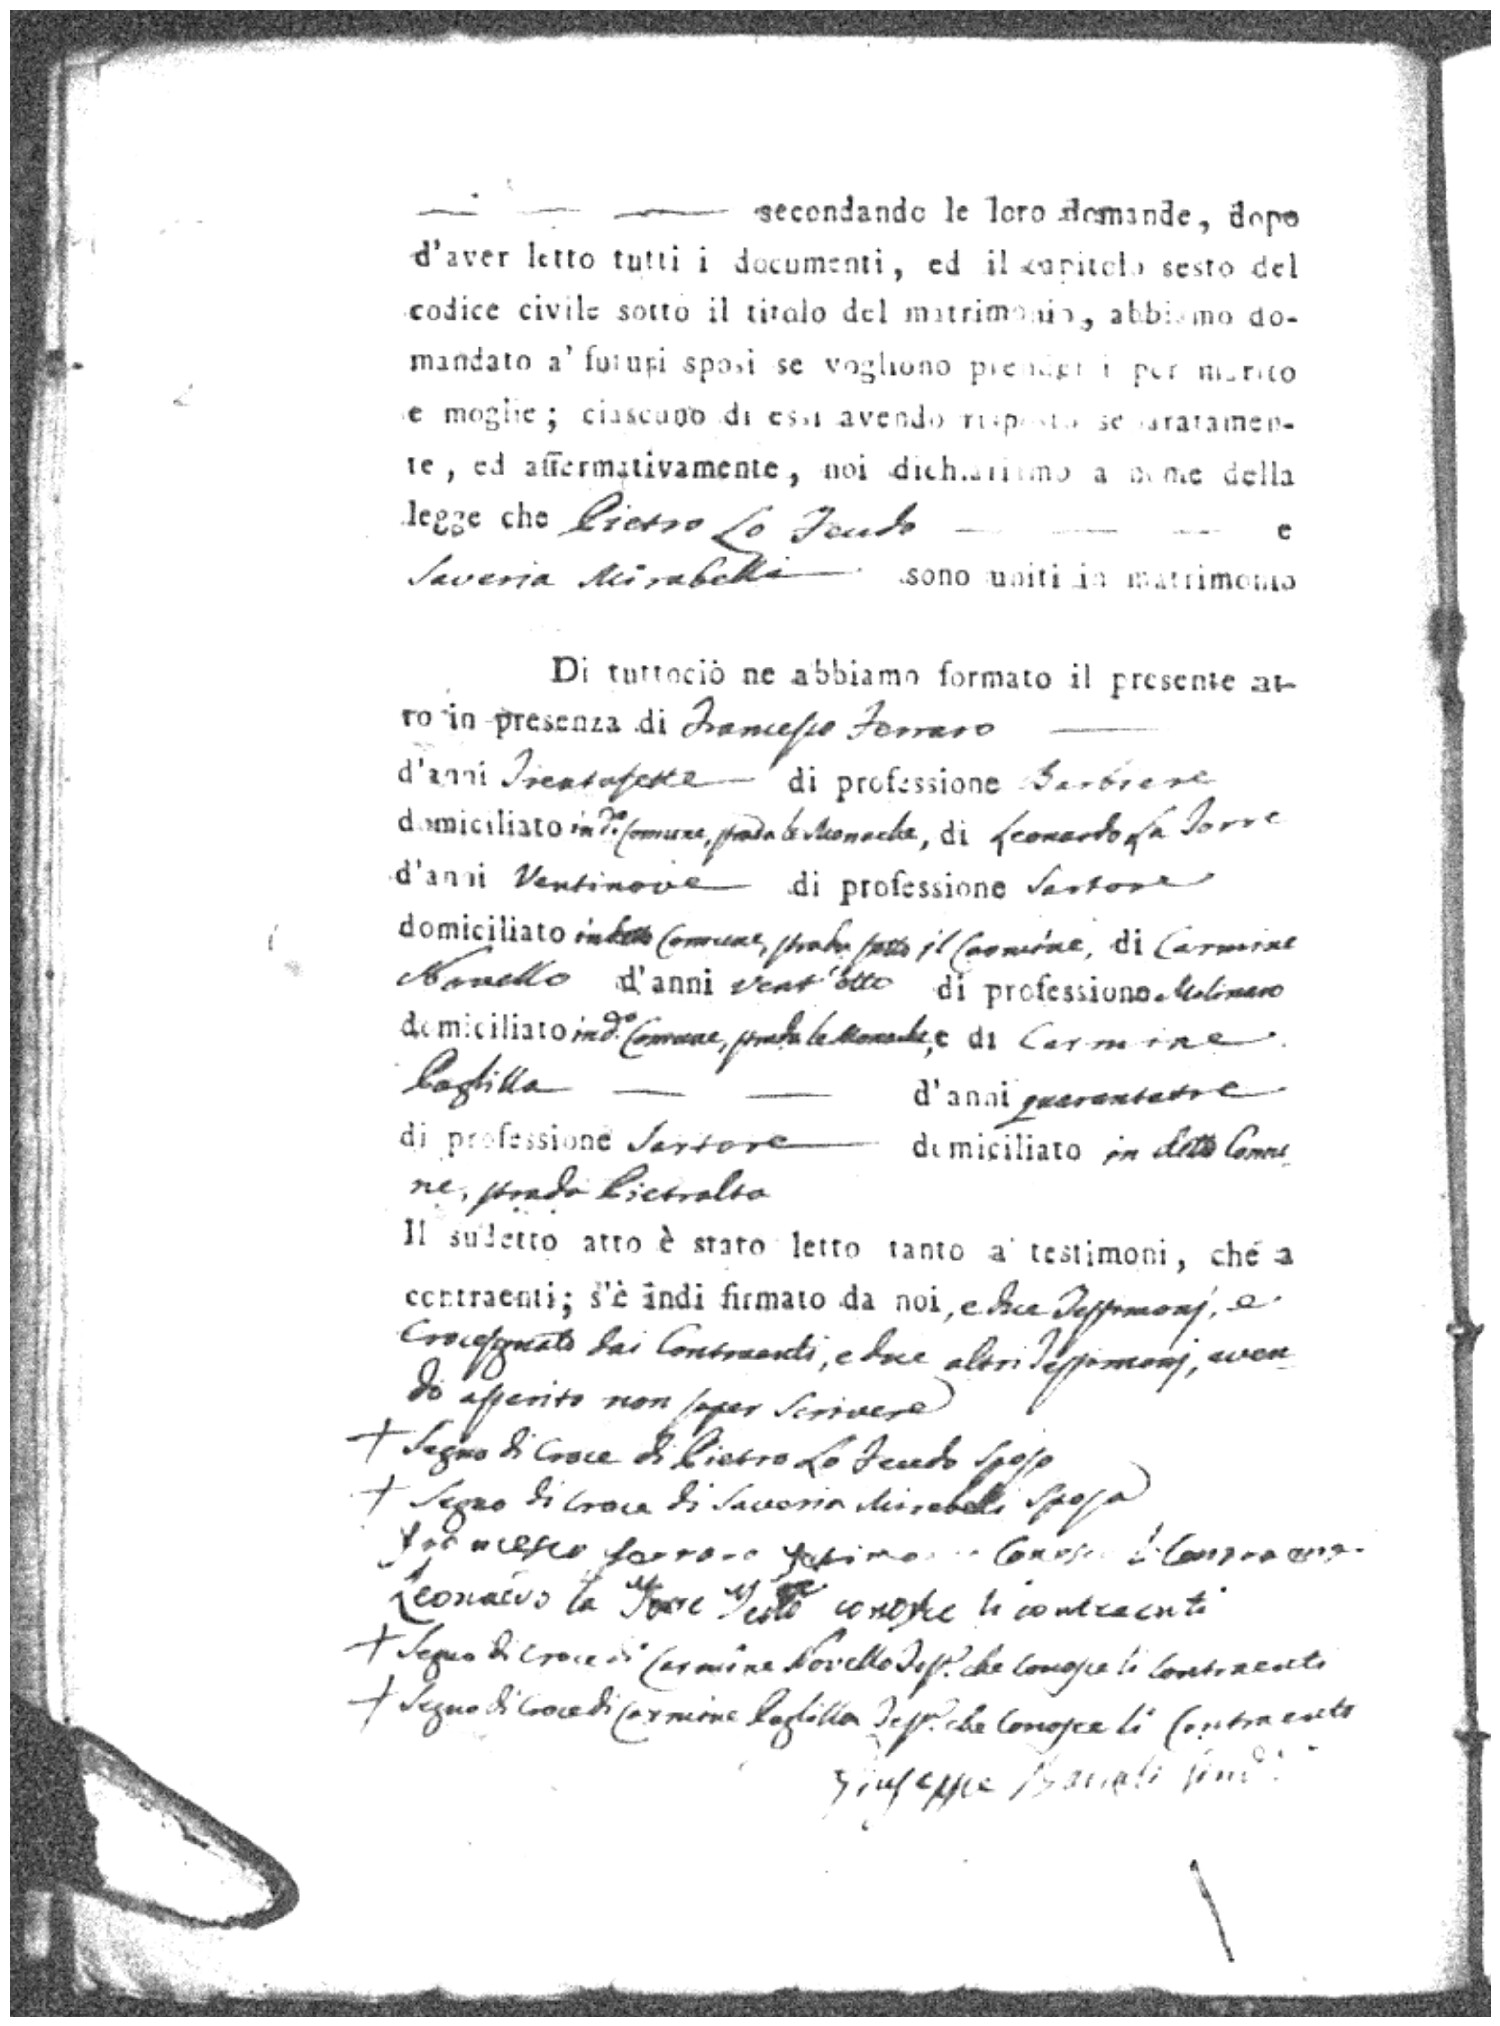 secondando le loro domande, dopo
d'aver letto tutti i documenti, ed il capitolo sesto del
codice civile sotto il titolo del matrimonio, abbiamo do-
mandato a' futuri sposi se vogliono prendersi per marito
e moglie; ciascuno di essi avendo risposto separatamen-
te, ed affermativamente, noi dichiariamo a nome della
legge che Pietro Lo Feudo e
Saveria Mirabelli sono uniti in matrimonio
Di tuttociò ne abbiamo formato il presente at-
to in presenza di Francesco Ferraro
d'anni Trentasette di professione Barbiere
domiciliato in d.º Comune, strada le Monache, di Leonardo La Torre
d'anni Ventinove di professione Sartore
domiciliato in detto Comune, strada sotto il Carmine, di Carmine
Novello d'anni vent'otto di professione Molinaro
domiciliato in d.º Comune, strada le Monache, e di Carmine
Paglilla d'anni quarantatre
di professione Sartore domiciliato in detto Comu-
ne, strada Pietralta
Il sudetto atto è stato letto tanto a' testimoni, che a
contraenti; s'è indi firmato da noi, e due Testimonj, e
Crocesegnato dai Contraenti, e due altri Testimonj, aven-
do asserito non saper scrivere
+ Segno di Croce di Pietro Lo Feudo Sposo
+ Segno di Croce di Saveria Mirabelli Sposa
Francesco Ferraro Conosce li Contraenti
Leonardo la Torre conosce li contraenti
+ Segno di Croce di Carmine Novello Test.º che conosce li Contraenti
+ Segno di Croce di Carmine Paglilla Test.º che conosce li Contraenti
Giuseppe